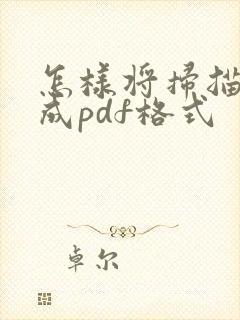 怎樣将掃描
成pdf格式
卓尔